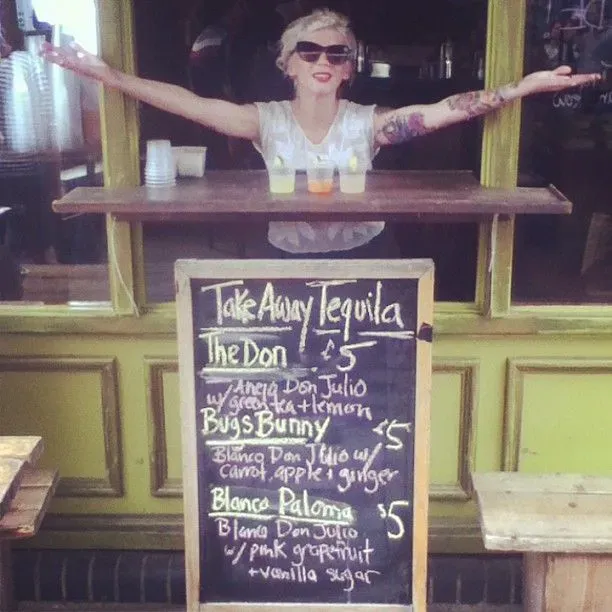 Take Away Tequila
The Don £5
Anejo Don Julio
w/ green tea + lemon
Bugs Bunny £5
Blanco Don Julio w/
carrot, apple + ginger
Blanco Paloma £5
Blanco Don Julio
w/ pink grapefruit
+ vanilla sugar